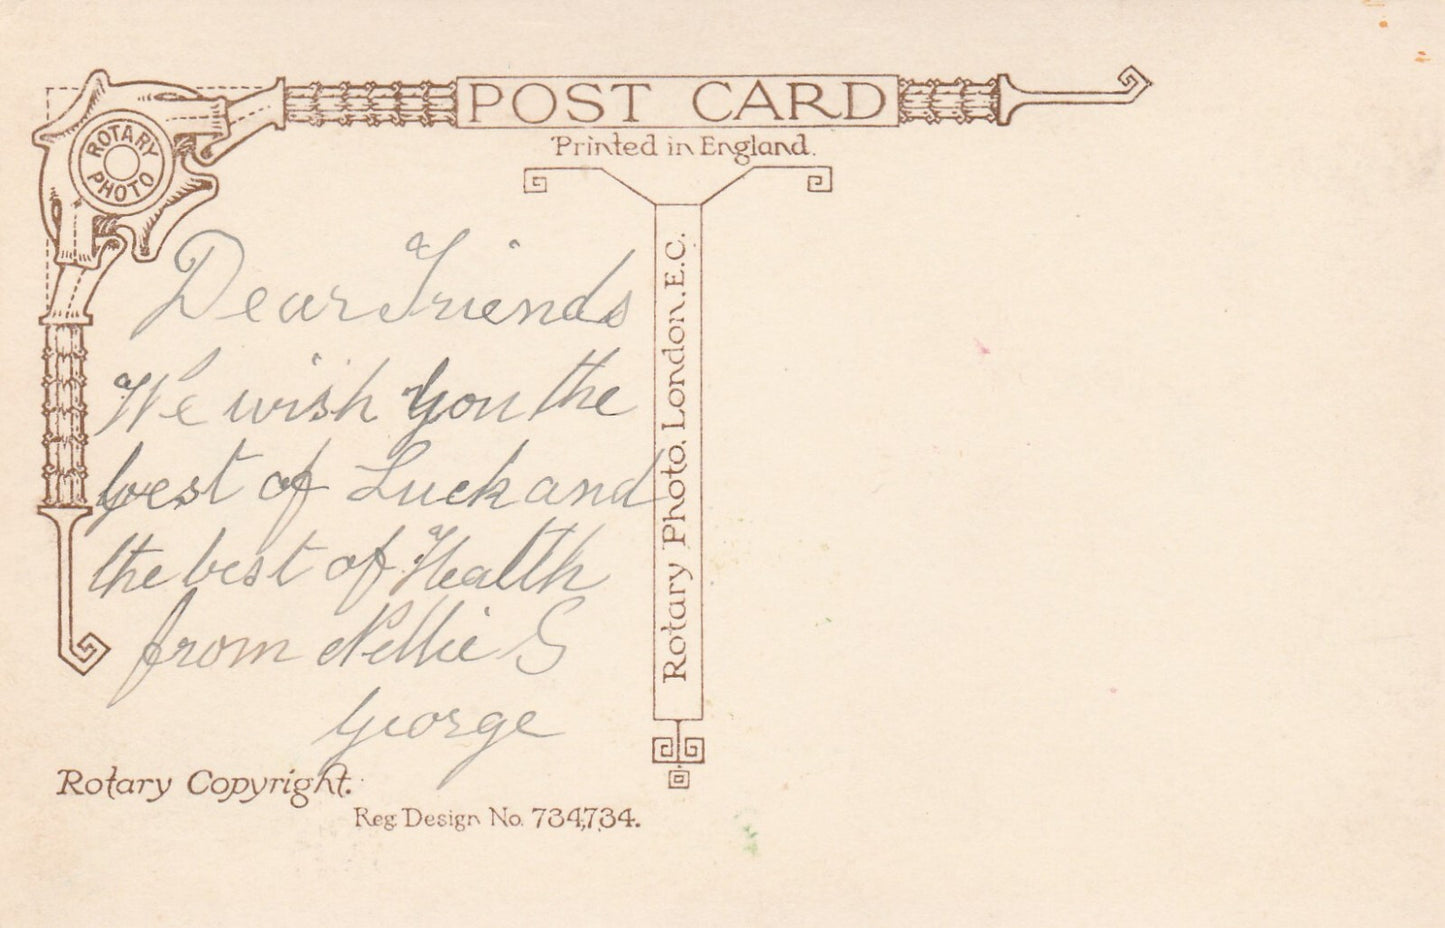 ROTARY
PHOTO
POST CARD
Printed in England.
Dear Friends
We wish you the
best of Luck and
the best of Health
from Nellie &
George
Rotary Photo. London. E.C.
Rotary Copyright.
Reg. Design No. 734,734.